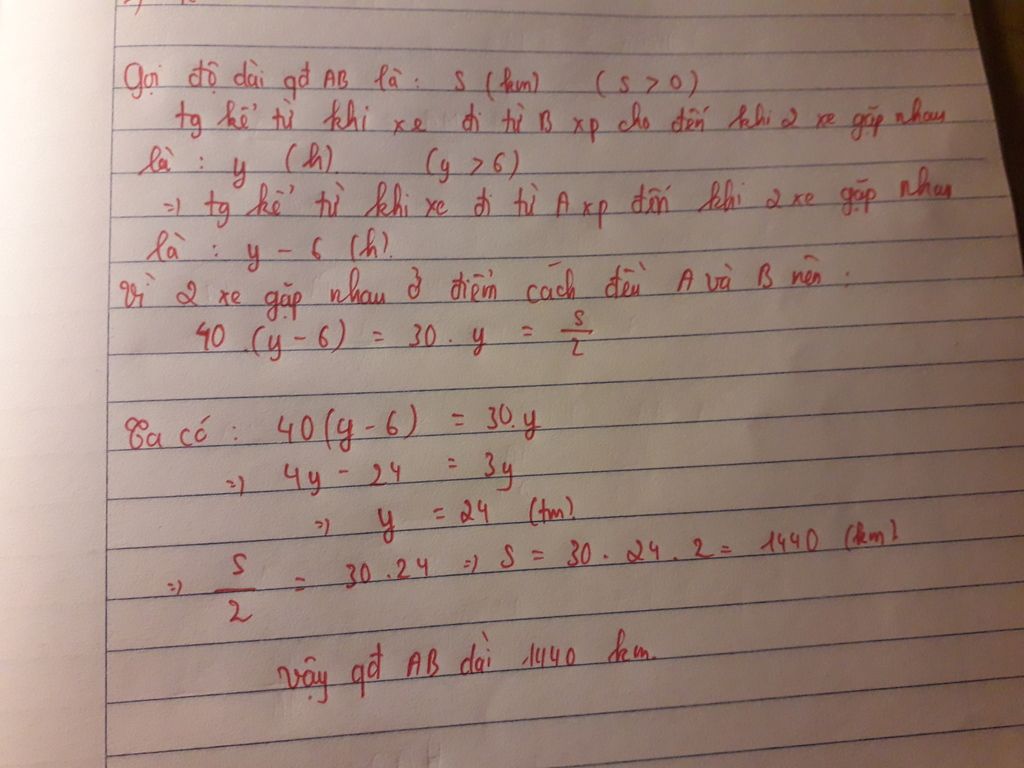 Gọi độ dài qđ AB là : S (km) (S > 0)
tg kể từ khi xe đi từ B xp cho đến khi 2 xe gặp nhau
là : y (h) (y > 6)
=> tg kể từ khi xe đi từ A xp đến khi 2 xe gặp nhau
là : y - 6 (h).
Vì 2 xe gặp nhau ở điểm cách đều A và B nên :
40 . (y - 6) = 30 . y = S/2
Ta có : 40(y - 6) = 30.y
=> 4y - 24 = 3y
=> y = 24 (tm)
=> S/2 = 30 . 24 => S = 30 . 24 . 2 = 1440 (km)
Vậy qđ AB dài 1440 km.